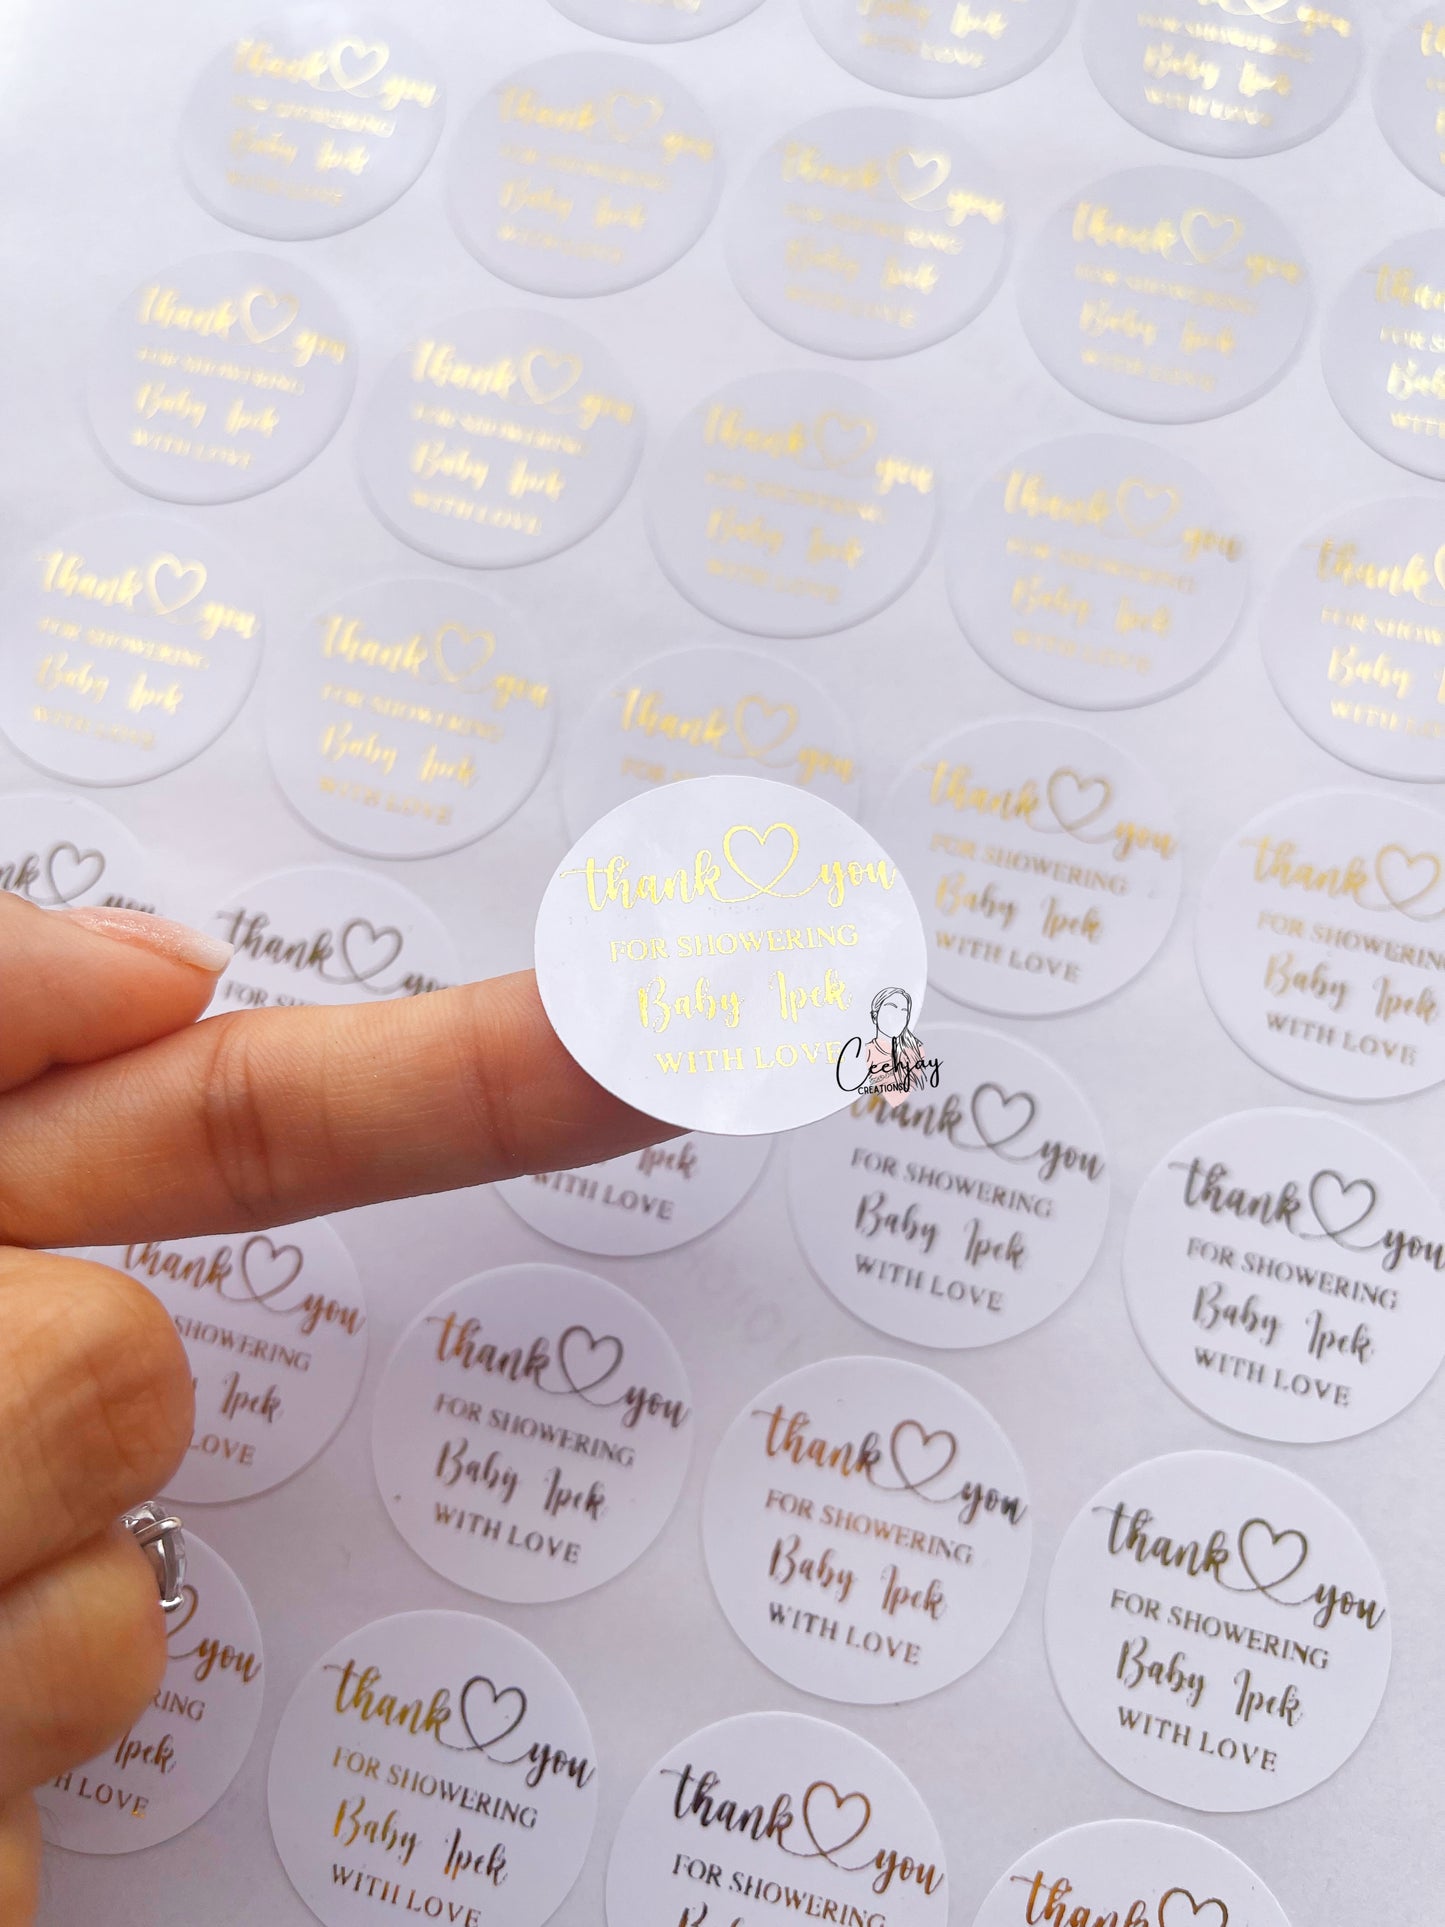 thank you
FOR SHOWERING
Baby Ipek
WITH LOVE
Ceehjay
CREATIONS